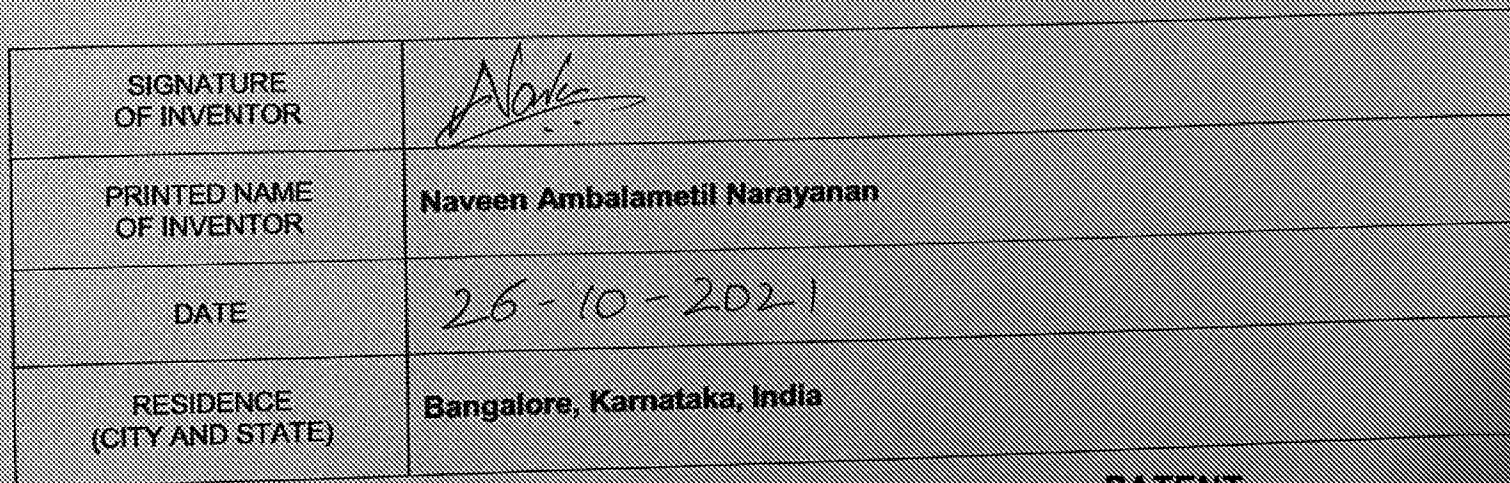 SIGNATURE
OF INVENTOR
PRINTED NAME
OF INVENTOR
Naveen Ambalametil Narayanan
DATE
26-10-2021
RESIDENCE
(CITY AND STATE)
Bangalore, Karnataka, India
PATENT